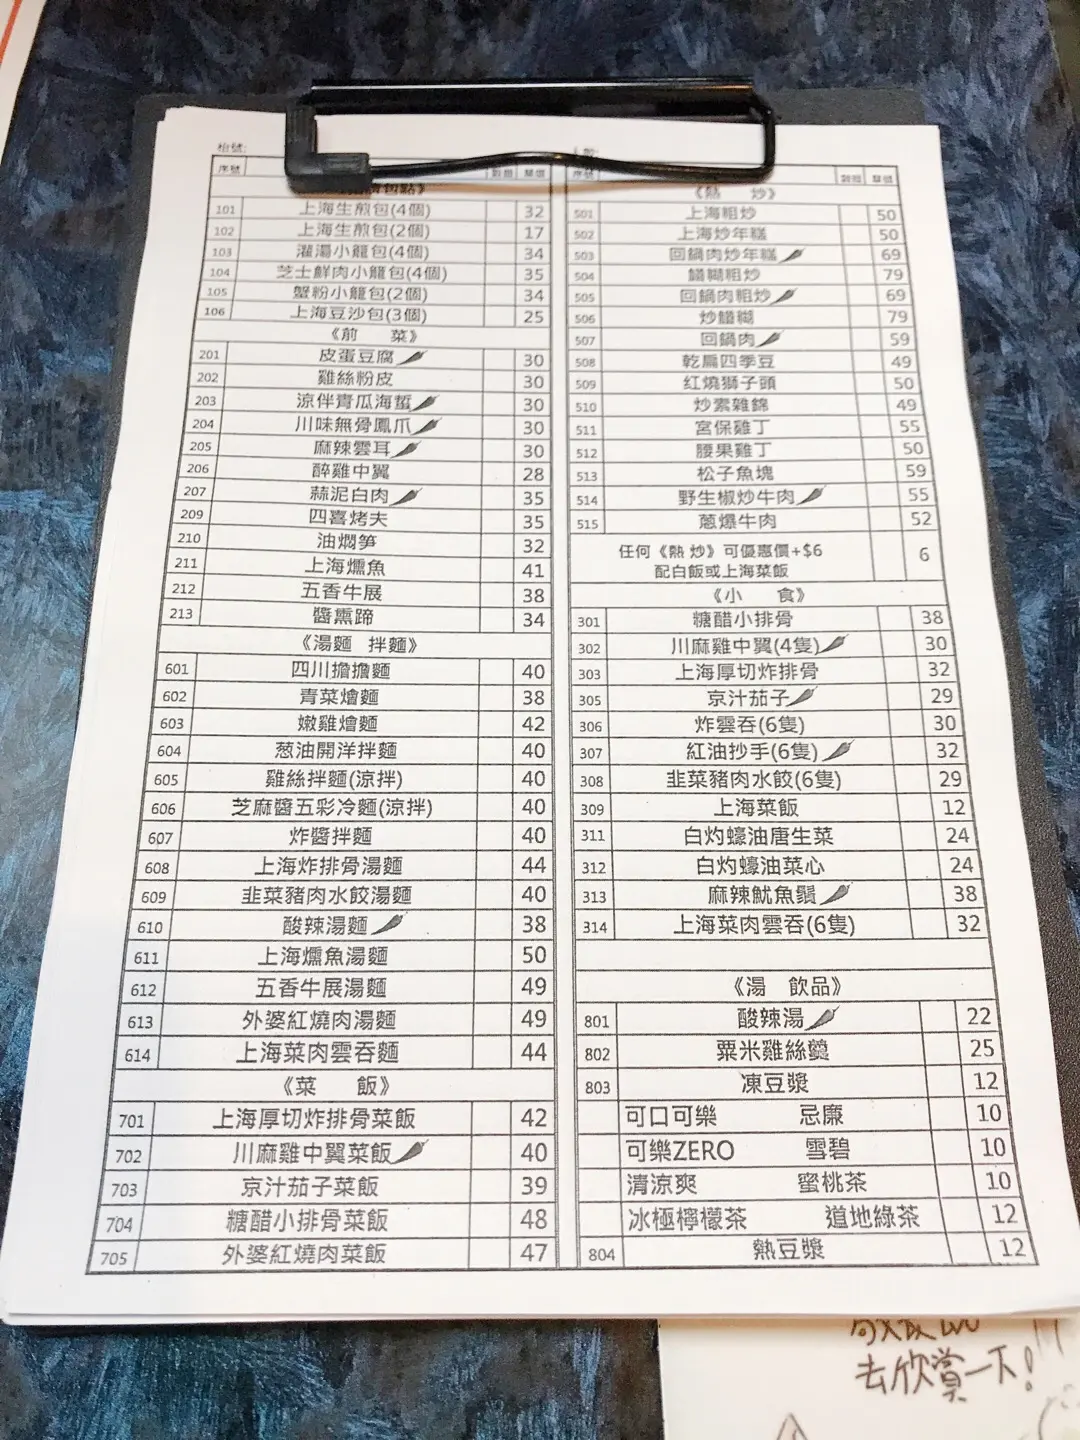 枱號:
序號 數量 單價
包點》
101 上海生煎包(4個) 32
102 上海生煎包(2個) 17
103 灌湯小籠包(4個) 34
104 芝士鮮肉小籠包(4個) 35
105 蟹粉小籠包(2個) 34
106 上海豆沙包(3個) 25
《前 菜》
201 皮蛋豆腐 30
202 雞絲粉皮 30
203 涼伴青瓜海蜇 30
204 川味無骨鳳爪 30
205 麻辣雲耳 30
206 醉雞中翼 28
207 蒜泥白肉 35
209 四喜烤夫 35
210 油燜筍 32
211 上海燻魚 41
212 五香牛展 38
213 醬熏蹄 34
《湯麵 拌麵》
601 四川擔擔麵 40
602 青菜燴麵 38
603 嫩雞燴麵 42
604 葱油開洋拌麵 40
605 雞絲拌麵(涼拌) 40
606 芝麻醬五彩冷麵(涼拌) 40
607 炸醬拌麵 40
608 上海炸排骨湯麵 44
609 韭菜豬肉水餃湯麵 40
610 酸辣湯麵 38
611 上海燻魚湯麵 50
612 五香牛展湯麵 49
613 外婆紅燒肉湯麵 49
614 上海菜肉雲吞麵 44
《菜 飯》
701 上海厚切炸排骨菜飯 42
702 川麻雞中翼菜飯 40
703 京汁茄子菜飯 39
704 糖醋小排骨菜飯 48
705 外婆紅燒肉菜飯 47
序號 數量 單價
《熱 炒》
501 上海粗炒 50
502 上海炒年糕 50
503 回鍋肉炒年糕 69
504 鱔糊粗炒 79
505 回鍋肉粗炒 69
506 炒鱔糊 79
507 回鍋肉 59
508 乾扁四季豆 49
509 紅燒獅子頭 50
510 炒素雜錦 49
511 宮保雞丁 55
512 腰果雞丁 50
513 松子魚塊 59
514 野生椒炒牛肉 55
515 蔥爆牛肉 52
任何《熱 炒》可優惠價+$6 6
配白飯或上海菜飯
《小 食》
301 糖醋小排骨 38
302 川麻雞中翼(4隻) 30
303 上海厚切炸排骨 32
305 京汁茄子 29
306 炸雲吞(6隻) 30
307 紅油抄手(6隻) 32
308 韭菜豬肉水餃(6隻) 29
309 上海菜飯 12
311 白灼蠔油唐生菜 24
312 白灼蠔油菜心 24
313 麻辣魷魚鬚 38
314 上海菜肉雲吞(6隻) 32
《湯 飲品》
801 酸辣湯 22
802 粟米雞絲羹 25
803 凍豆漿 12
可口可樂 忌廉 10
可樂ZERO 雪碧 10
清涼爽 蜜桃茶 10
冰極檸檬茶 道地綠茶 12
804 熱豆漿 12
去欣賞一下!